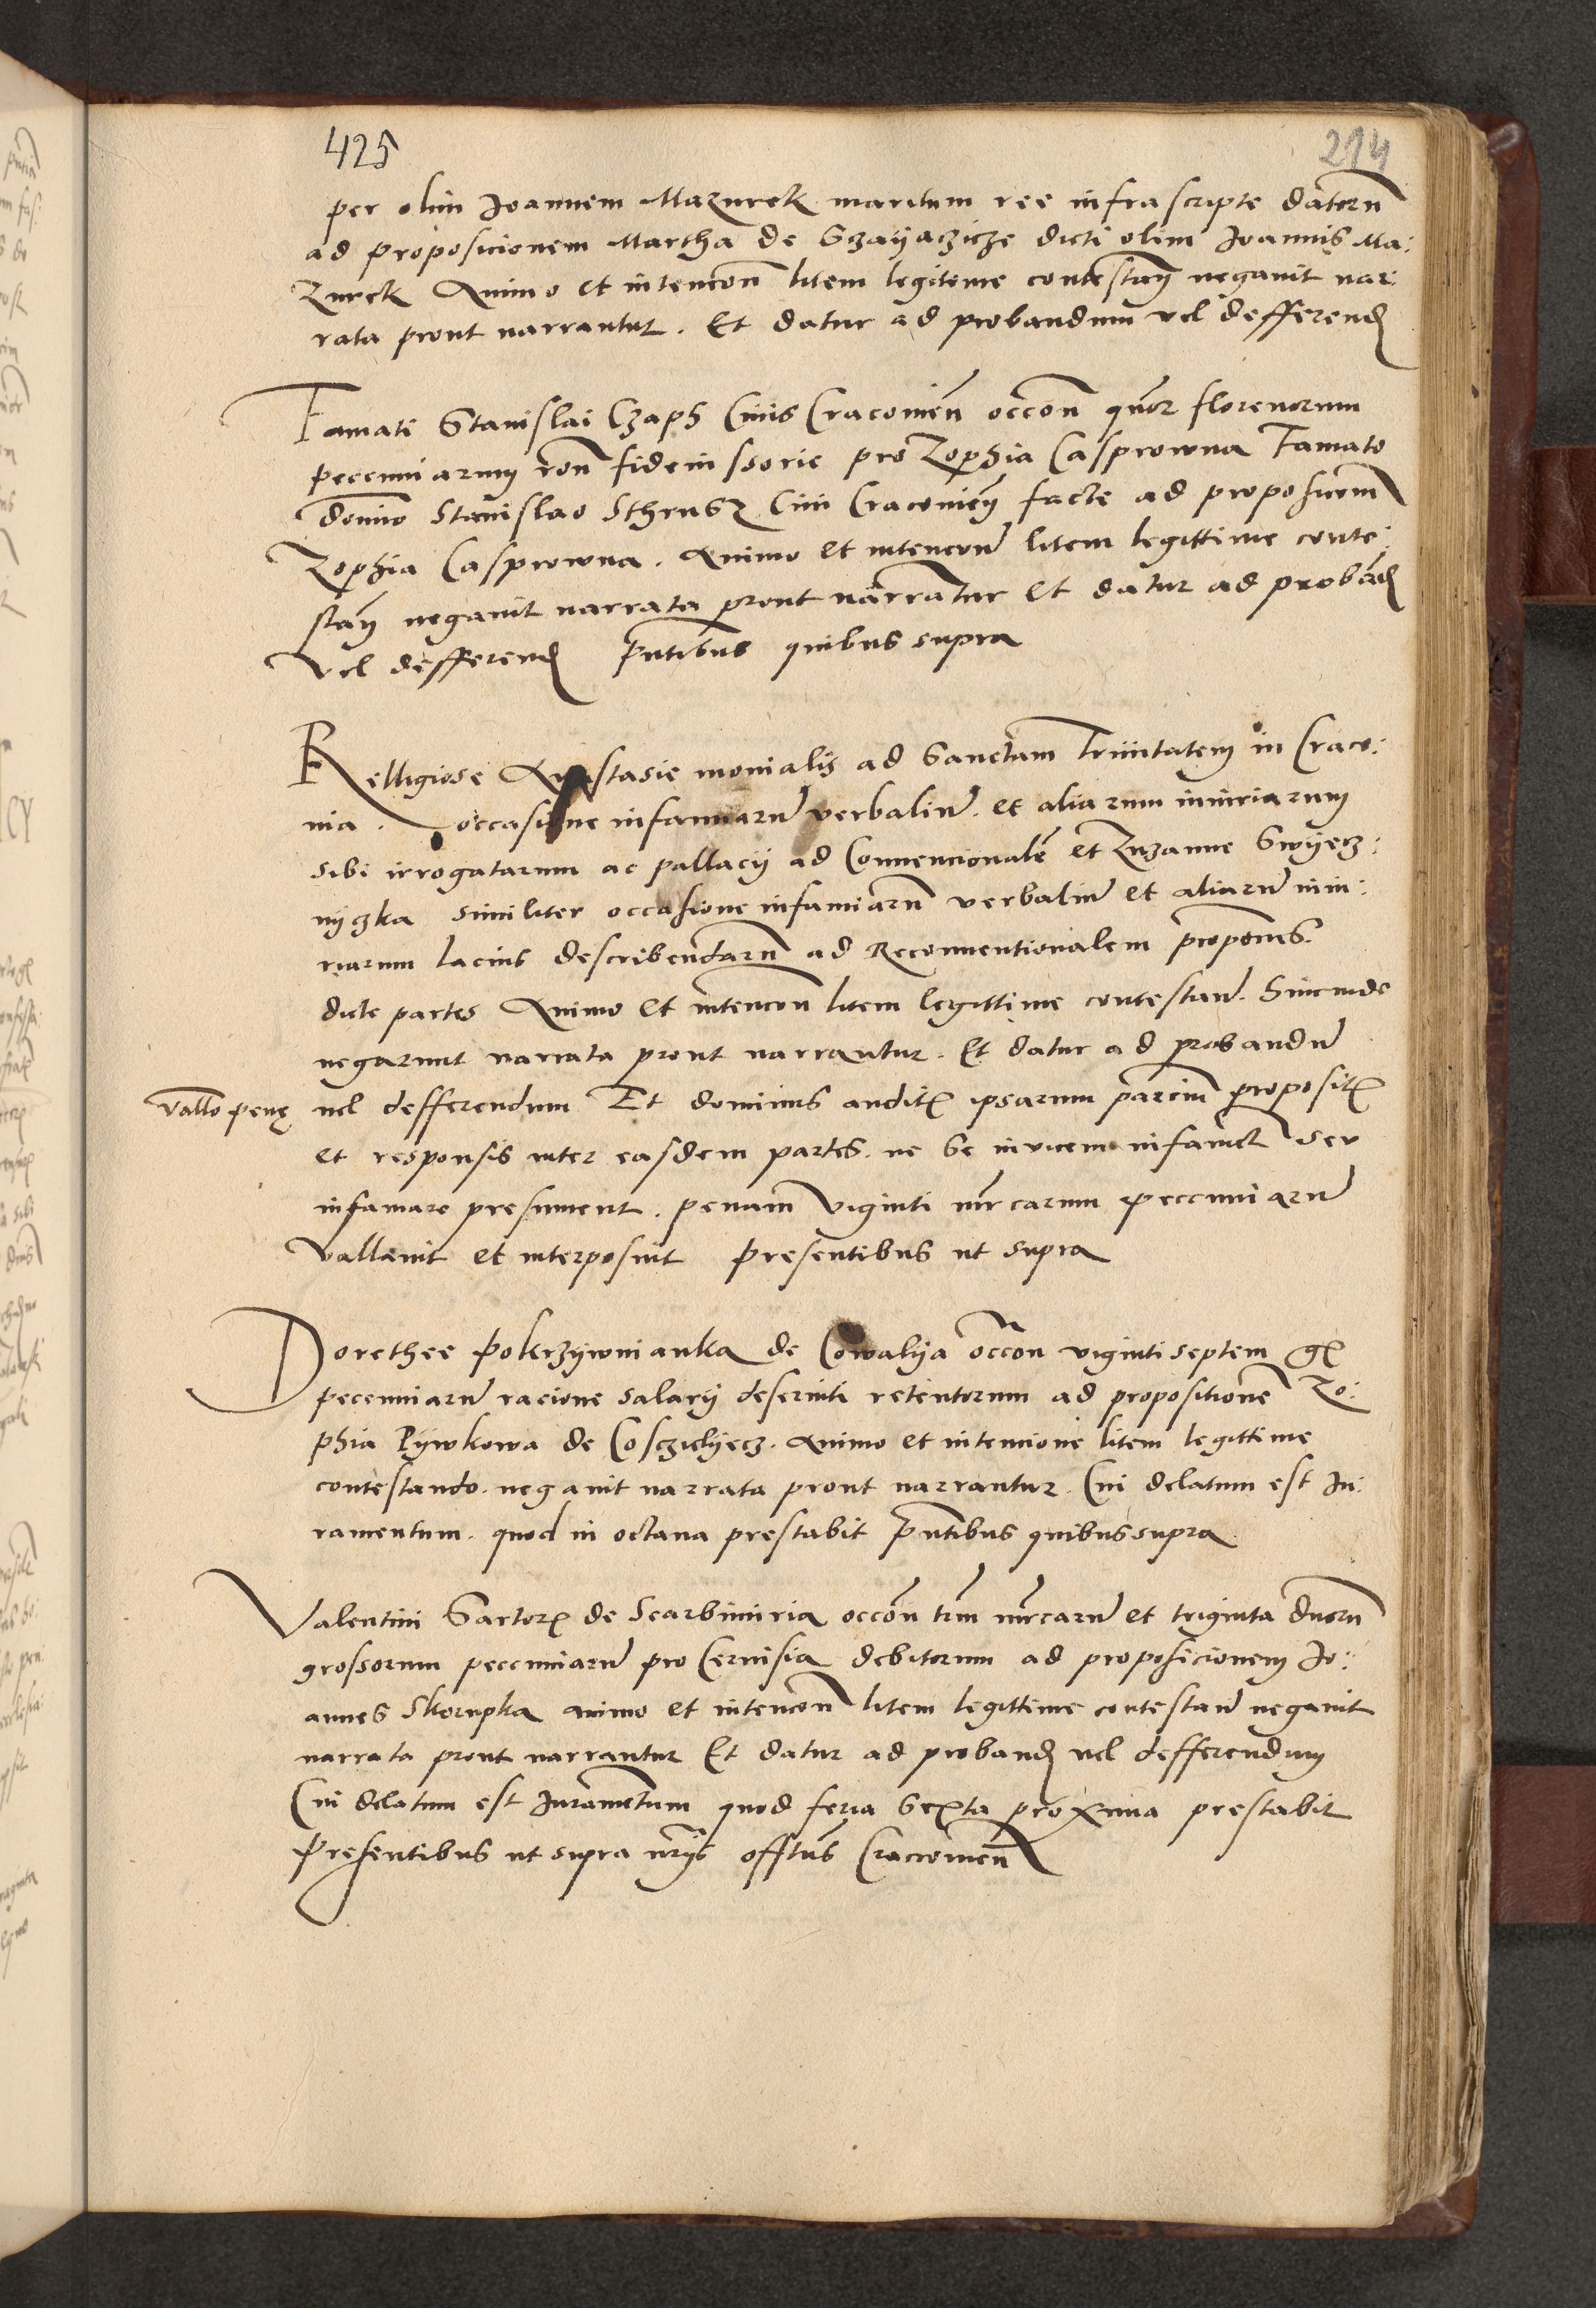 425
214
per olim Joannem Mazurek maritum ree infrascripte datoru
ad proposicionem Martha de Sczayaczicze dicti olim Joannis Ma:
zurek Animo et intencon litem legitime contestan negavit nar:
rata prout narrantur. Et datur ad probandum vel defferend
Famati Stanislai Czaph Civis Cracovien occon quor florenorum
pecuniarum ron fideiussorie pro Zophia Casprowna Famato
domino Stanislao Sthrusz Civi Cracovien facte ad proposicom
Zophia Casprowna. Animo et intencone litem legittime conte:
stan negavit narrata prout narratur Et datur ad proband
vel defferend Pntibus quibus supra
Religiose Anastasie monialis ad Sanctam Trinitatem in Craco:
nia. occasione infamiaru verbaliu. et aliarum iniuriarum
sibi irrogatarum ac pallacij ad Convencionale et Zuzanne Swyecz:
nyczka similiter occasione infamiaru verbaliu et aliaru iniu:
riarum lacius describendaru ad Reconventionalem propones.
dicte partes Animo et intencon litem legittime contestan. Hincinde
negarunt narrata prout narrantur. Et datur ad probandu
Vallo pene
vel defferendum Et dominus audit ipsarum parcium proposit
et responsis inter easdem partes. ne se invicem infament seu
infamare presument. penam viginti mrcarum pecuniaru
vallavit et interposuit Presentibus ut supra
Dorethee Pokrzywnianka de Cowalya occon viginti septem gr
pecuniaru racione salarij deserviti retentorum ad propositione Zo:
phia Pywkowa de Cosczielyecz. Animo et intencione litem legittime
contestando. negavit narrata prout narrantur. Cui delatum est Ju:
ramentum. quod in octava prestabit Pntibus quibus supra
Valentini Sartor de Scarbimiria occon trm mrcaru et triginta duoru
grossorum pecuniaru pro Cervisia debitorum ad proposicionem Jo:
annes Skorupka animo et intencon litem legittime contestan negavit
narrata prout narrantur Et datur ad proband vel defferendum
Cui delatum est Juramentum quod feria Sexta proxima prestabit
Presentibus ut supra nrijs offtus Cracovien